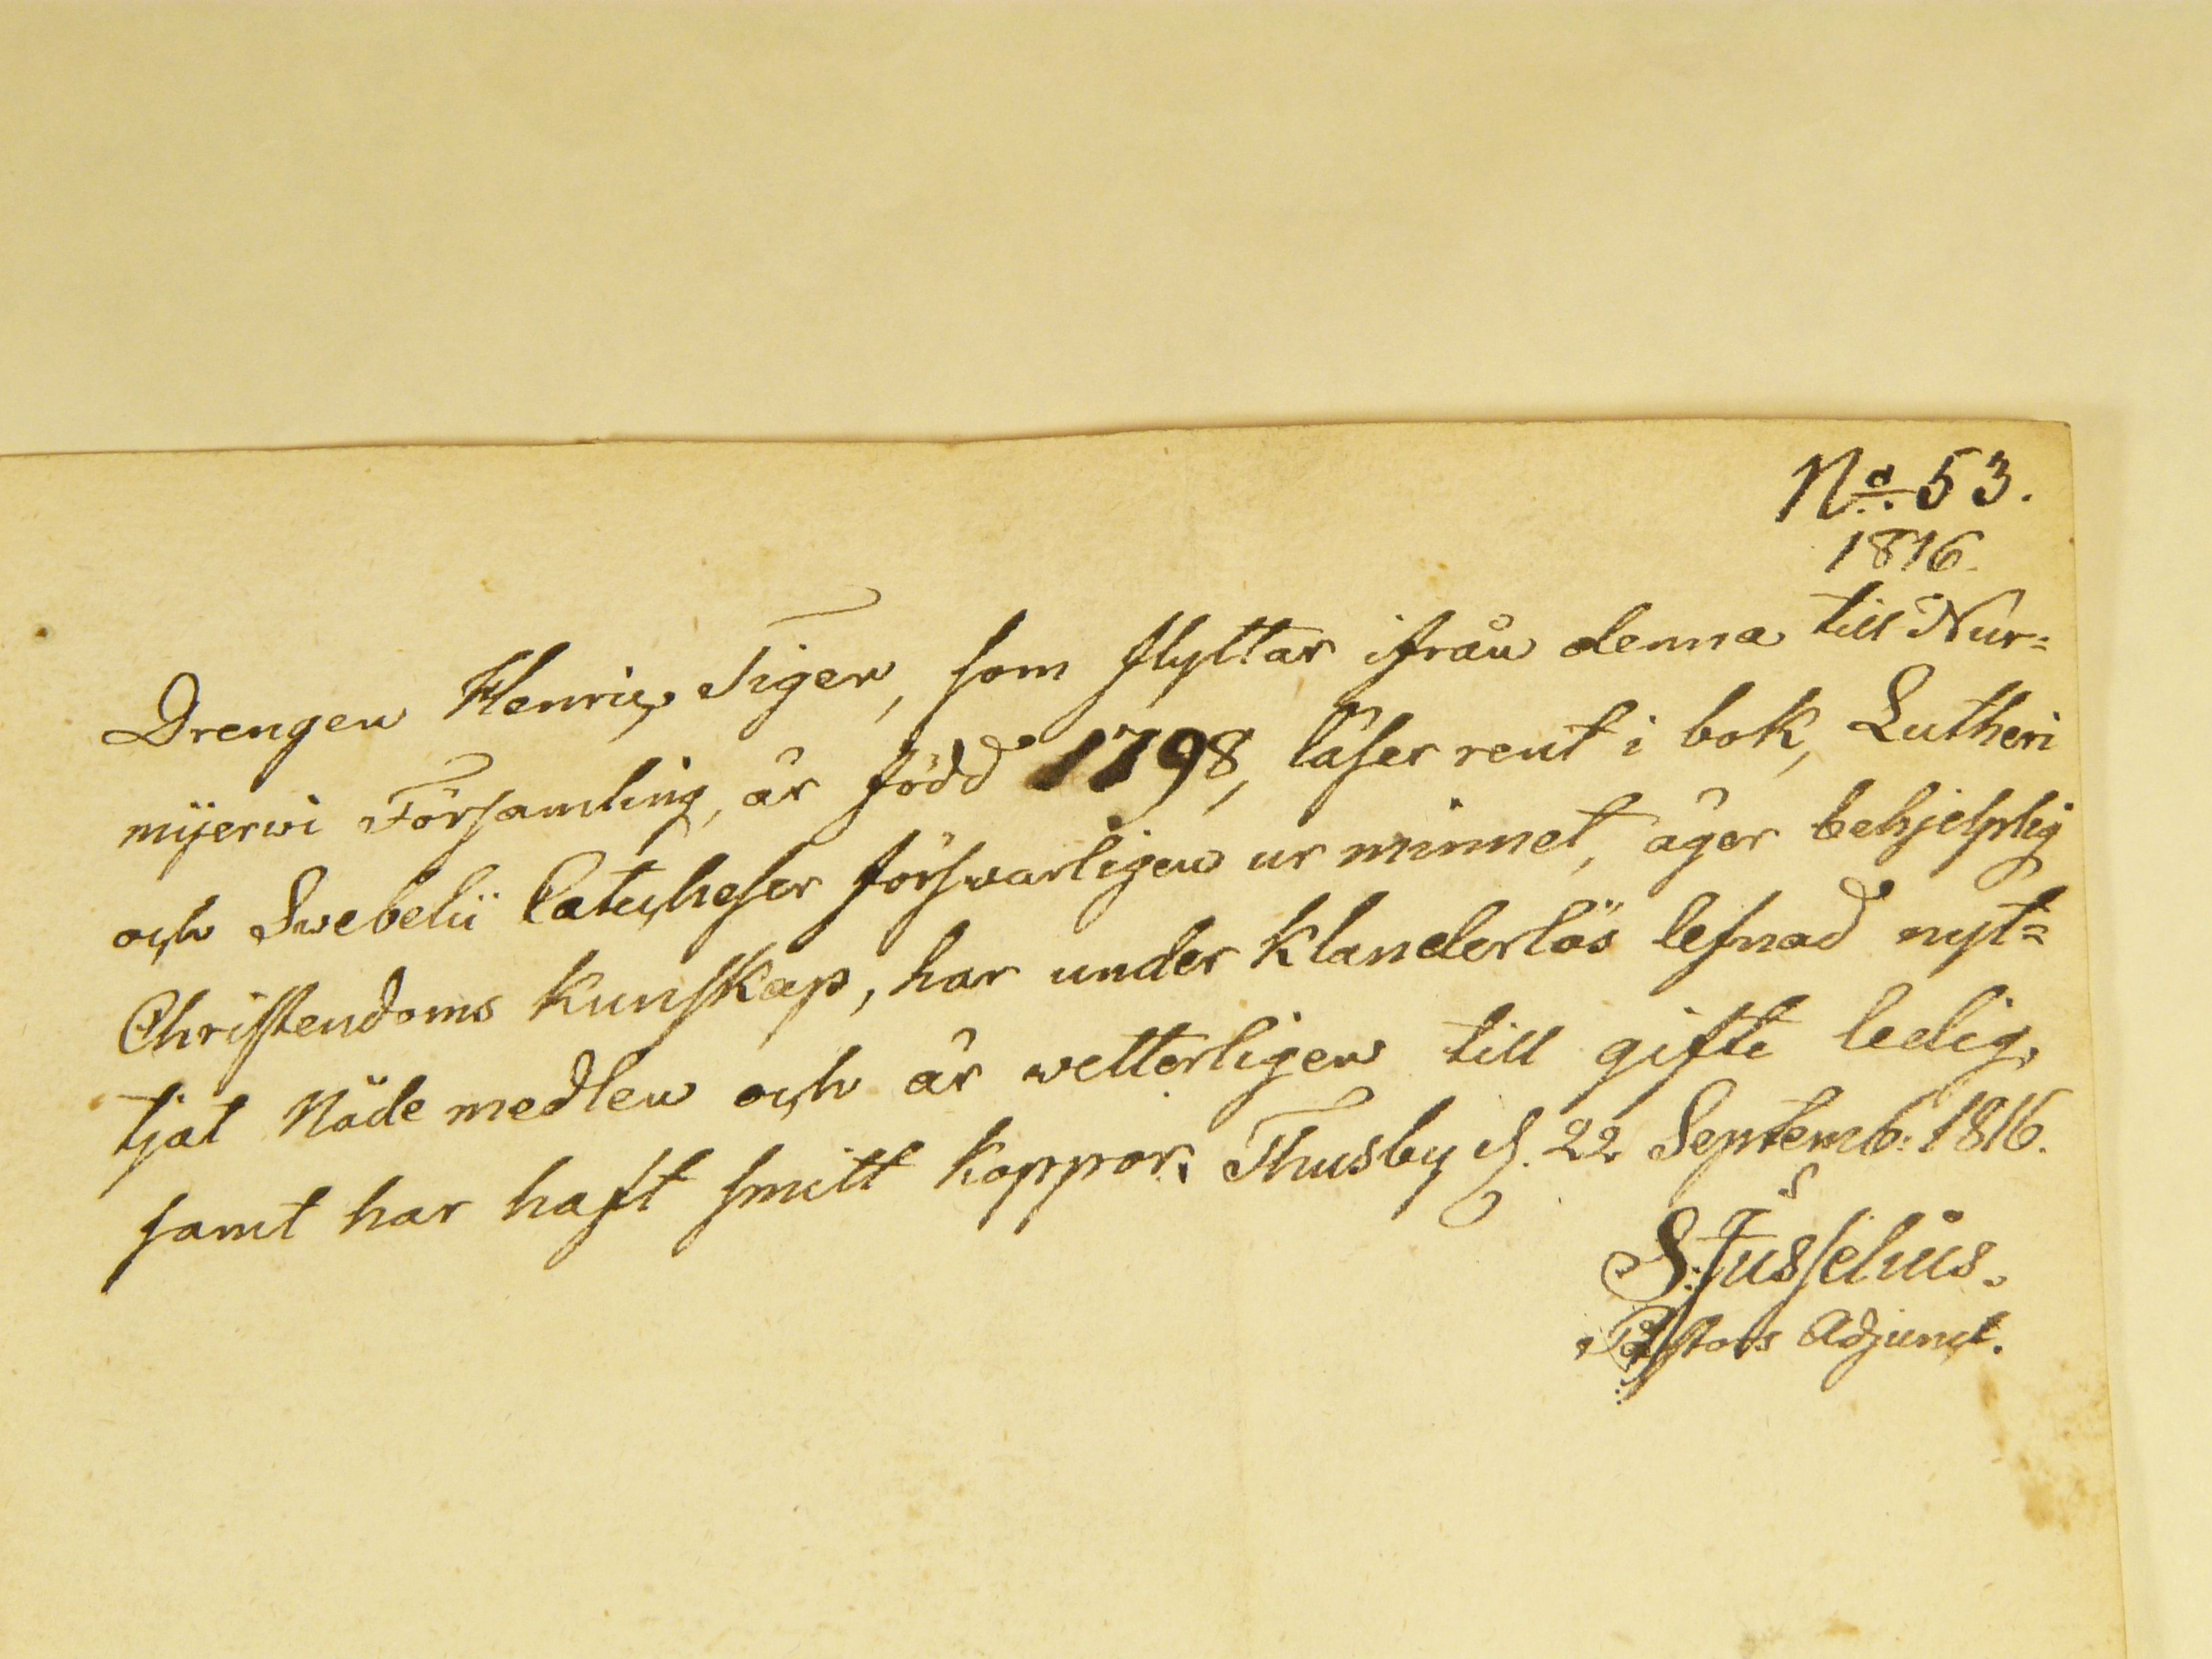 No. 53.
1816.
Drengen Henric Tiger, som flyttar ifrån denna till Nur=
mijerwi Församling, är född 1798, läser rent i bok, Lutheri
och Swebelii Catecheser förswarligen ur minnet, äger behjelplig
Christendoms Kunskap, har under klanderlös lefnad nyt=
tjat Nåde medlen och är wetterligen till gifte ledig,
samt har haft smitt koppor. Thusby d. 22 Septemb: 1816.
S: Jusselius.
Pastors Adjunct.